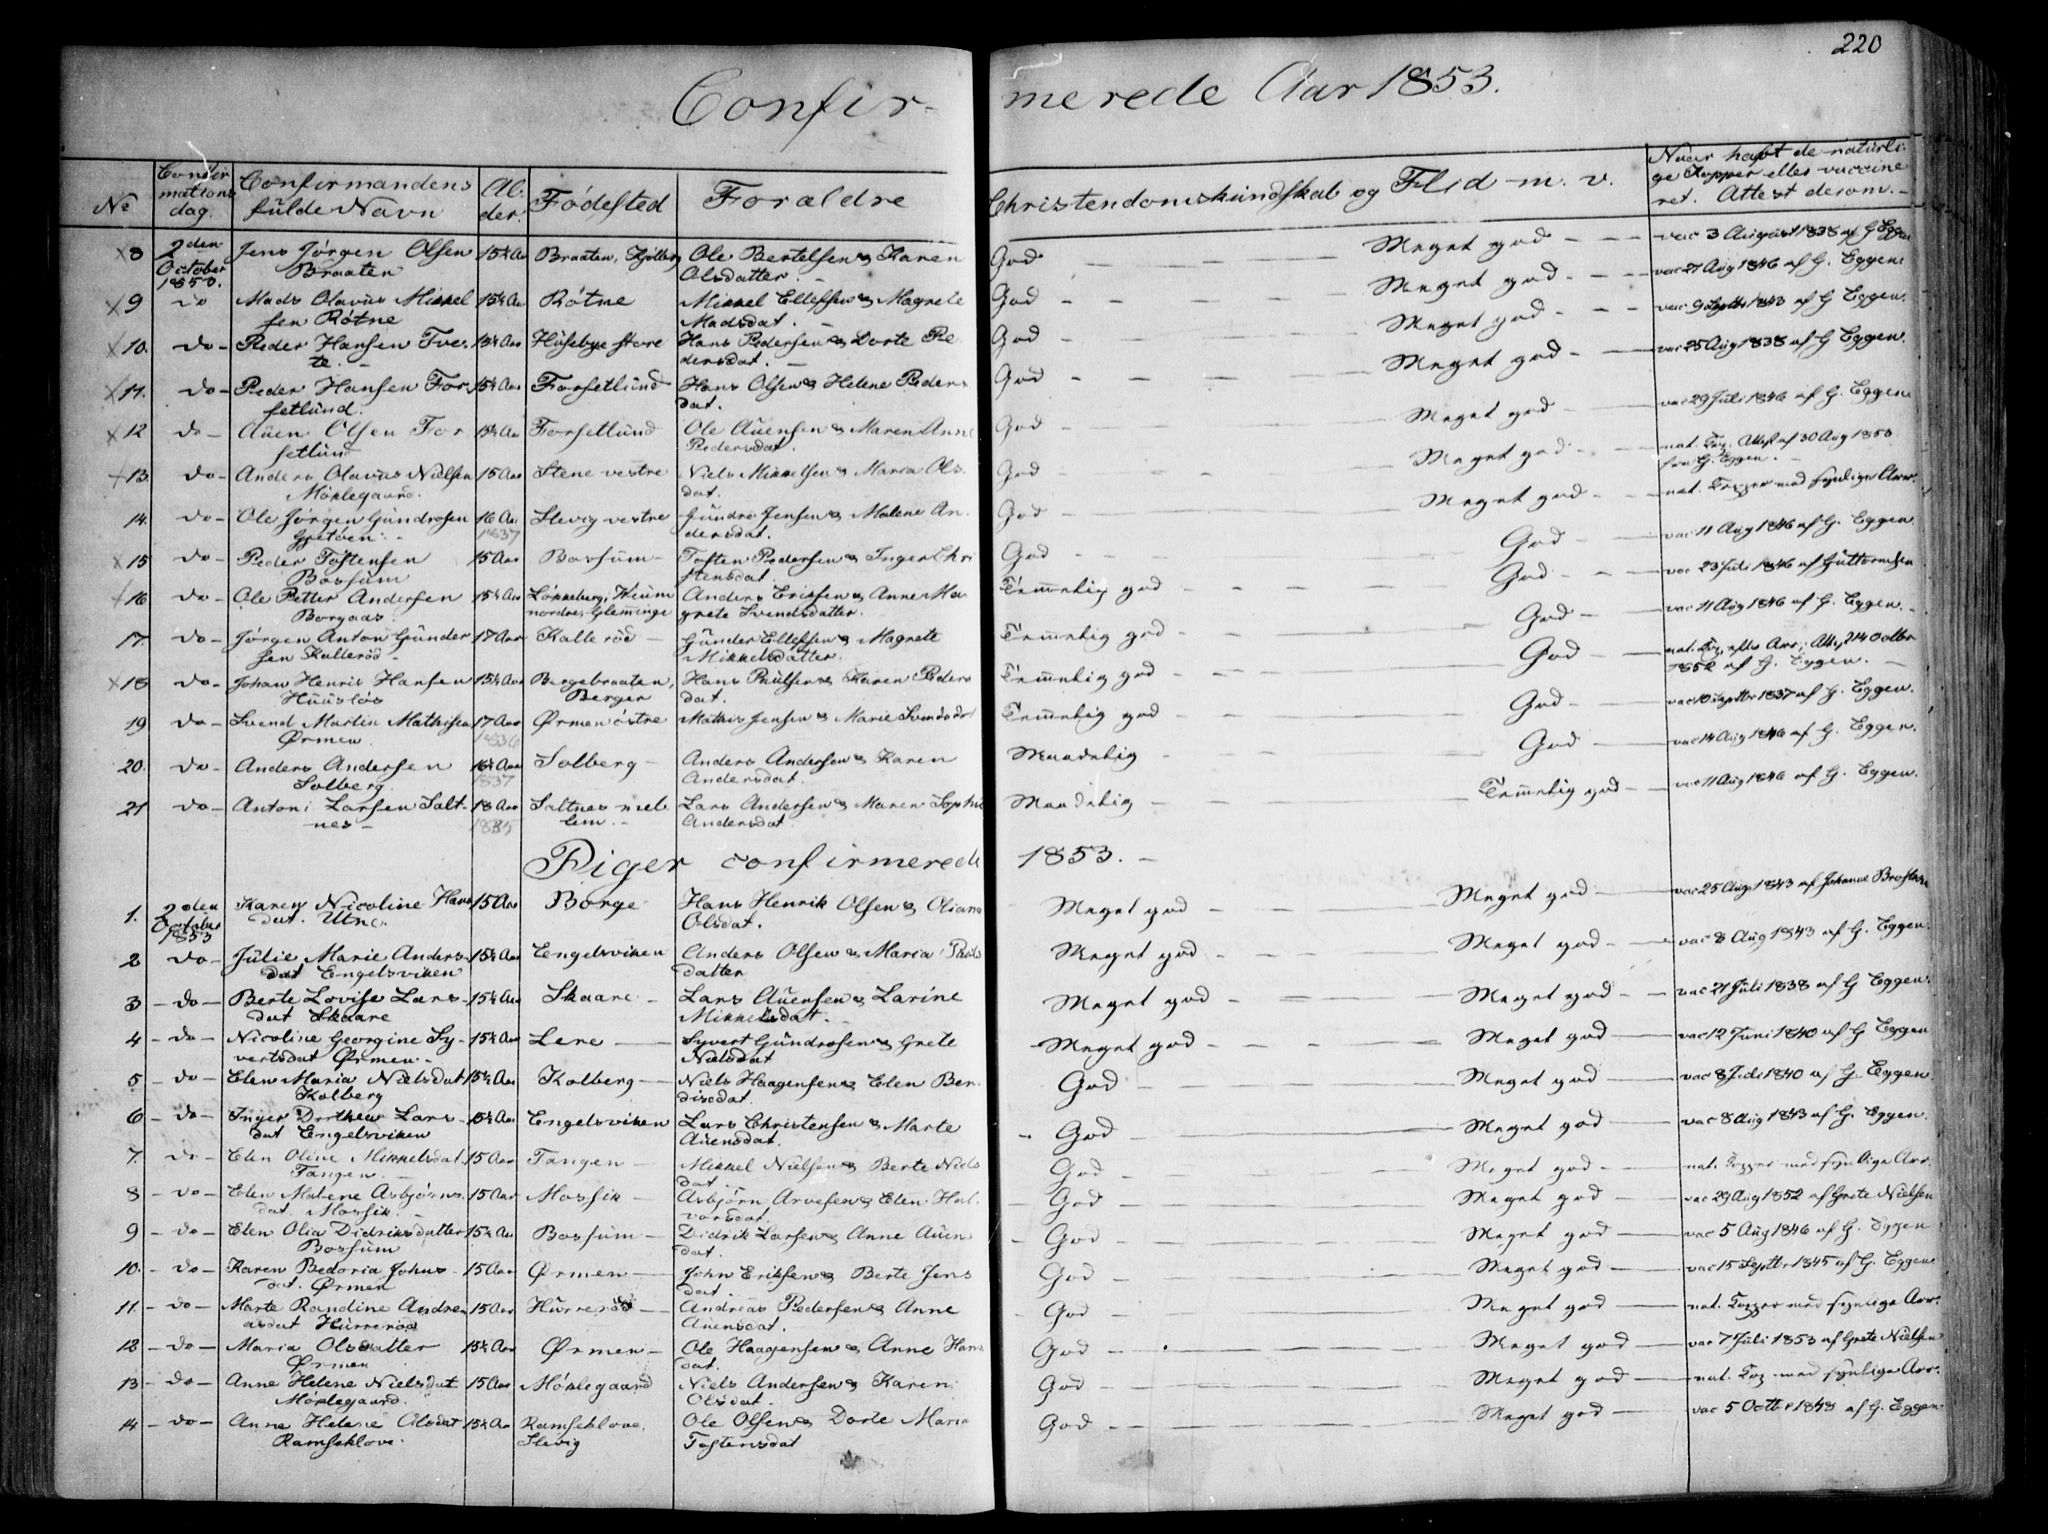 220
Confirmerede Aar 1853.
No Confirmations dag. Confirmandens fulde Navn Alder. Fødested Forældre Christendomskundskab og Flid m. v. Naar haft de naturlige Kopper eller vaccineret. Attest derom.
8 2den October 1853. Jens Jørgen Olsen Braaten 15½ Aar Braaten, Ole Bertelsen & Karen Olsdatter God Meget god vac 3 August 1838 af G. Eggen
9 do Mads Olavus Mikkelsen Røtne 15½ Aar Røtne Mikkel Ellefsen & Magrete Madsdat. God Meget god vac 27 Aug 1846 af G. Eggen
10. do Peder Hansen Tvete. 15½ Aar Husebye store Hans Pedersen & Dorte Pedersdat. God Meget god vac 9 Septbr 1843 af G. Eggen.
11. do Peder Hansen Forsetlund. 15½ Aar Forsetlund Hans Olsen & Helene Pedersdat. God Meget god vac 25 Aug 1838 af G. Eggen.
12 do Auen Olsen Forsetlund 15½ Aar Forsetlund Ole Auensen & Maren Anne Pedersdat. God Meget god vac 29 Juli 1846 af G. Eggen
13. do Anders Olavus Nielsen Møklegaard. 15 Aar Stene vestre Niels Mikkelsen & Maria Olsdat. God Meget god nat. Kop. Attest af 30 Aug 1853 fra G. Eggen.
14. do Ole Jørgen Gundrosen 16 Aar 1837 Slevig vestre Gundro Jensen & Malene Andersdat. God Meget god nat. Kopper med synlige Arr.
15 do Peder Tostensen Bossum 15 Aar Bossum Tosten Pedersen & Inger Christensdat. God God vac 11 Aug 1846 af G. Eggen
16 do Ole Petter Andersen Borgaas. 15½ Aar Løkkeberg, Kium nordre, Glemminge Anders Eriksen & Anne Magrete Svendsdatter. Temmelig god God vac 23 Juli 1846 af Guttormsen
17. do Jørgen Anton Gundersen Kallerød 17 Aar Kallerød Gunder Ellefsen & Magrete Mikkelsdatter. Temmelig god God vac 11 Aug 1846 af G. Eggen.
18 do Johan Henrik Hansen Huusløs 15½ Aar Bergebraaten, Berger Hans Paulsen & Karen Pedersdat. Temmelig god God nat. Kop. efter Arr; Attest 14 Octbr 1852 af G. Eggen.
19 do Svend Martin Mathisen Ørmen 17 Aar 1836 Ørmen østre Mathis Jensen & Marie Svendsdat Temmelig god God vac 10 Septbr 1837 af G. Eggen.
20. do Anders Andersen Solberg. 16½ Aar 1837 Solberg Anders Andersen & Karen Andersdat. Maadelig God vac 14 Aug 1846 af G. Eggen.
21 do Antoni Larsen Saltnes 18 Aar 1835 Saltnes mellem. Lars Andersen & Maren Sophie Andersdat. Maadelig Temmelig god vac 11 Aug 1846 af G. Eggen.
Piger confirmerede 1853.
1. 2den October 1853 Karen Nicoline Hansdat. Utne. 15 Aar Borge Hans Henrik Olsen & Oliana Olsdat. Meget god Meget god vac 25 Aug 1843 af Johanne
2 do Julie Marie Andersdat Engelsviken 15½ Aar Engelsviken Anders Olsen & Maria Paulsdatter Meget god Meget god vac 8 Aug 1843 af G. Eggen.
3 do Berte Lovise Larsdat Skaare 15½ Aar Skaare Lars Auensen & Larine Mikkelsdat. Meget god Meget god vac 21 Juli 1838 af G. Eggen.
4 do Nicoline Georgine Syvertsdat Ørmen 15½ Aar Lere Syvert Gundrosen & Grete Nielsdat Meget god Meget god vac 12 Juni 1840 af G. Eggen
5 do Elen Maria Nielsdat Kolberg 15½ Aar Kolberg Niels Haagensen & Elen Berdisdat. God Meget god vac 8 Juli 1840 af G. Eggen
6 do Inger Dorthea Larsdat Engelsviken 15½ Aar Engelsviken Lars Christensen & Marte Auensdat. God Meget god vac 8 Aug 1843 af G. Eggen.
7. do Elen Oline Mikkelsdat. Tangen 15 Aar Tangen Mikkel Nielsen & Berte Nielsdat. God Meget god nat. Kopper med synlige Arr.
8 do Elen Malene Asbjørnsdat. Mossik. 15 Aar Mossik Asbjørn Arvesen & Elen Halvorsdat. God Meget god vac 29 Aug 1852 af Grete Nielsen
9 do Elen Olia Didriksdatter Bossum 15½ Aar Bossum Didrik Larsen & Anne Auensdat. God Meget god vac 5 Aug 1846 af G. Eggen
10. do Karen Bedoria Johnsdat. Ørmen 15 Aar Ørmen John Eriksen & Berte Jensdat. God Meget god vac 15 Septbr 1845 af G. Eggen
11. do Marte Randine Andreasdat Hurrerød 15 Aar Hurrerød Andreas Pedersen & Anne Auensdat. God Meget god nat. Kopper med synlige Arr.
12 do Maria Olsdatter Ørmen 15½ Aar Ørmen Ole Haagensen & Anne Hansdat. God Meget god vac 7 Juli 1853 af Grete Nielsen
13 do Anne Helene Nielsdat Møklegaard. 15 Aar Møklegaard Niels Andersen & Karen Olsdat. God Meget god nat. Kop med synlige Arr.
14 do Anne Helene Olsdat Ramseklove. 15½ Aar Ramseklove, Slevig Ole Olsen & Dorte Maria Tostensdat God Meget god vac 5 Octbr 1848 af G. Eggen